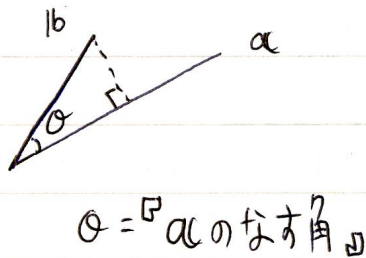 b
a
θ
θ=『aのなす角』